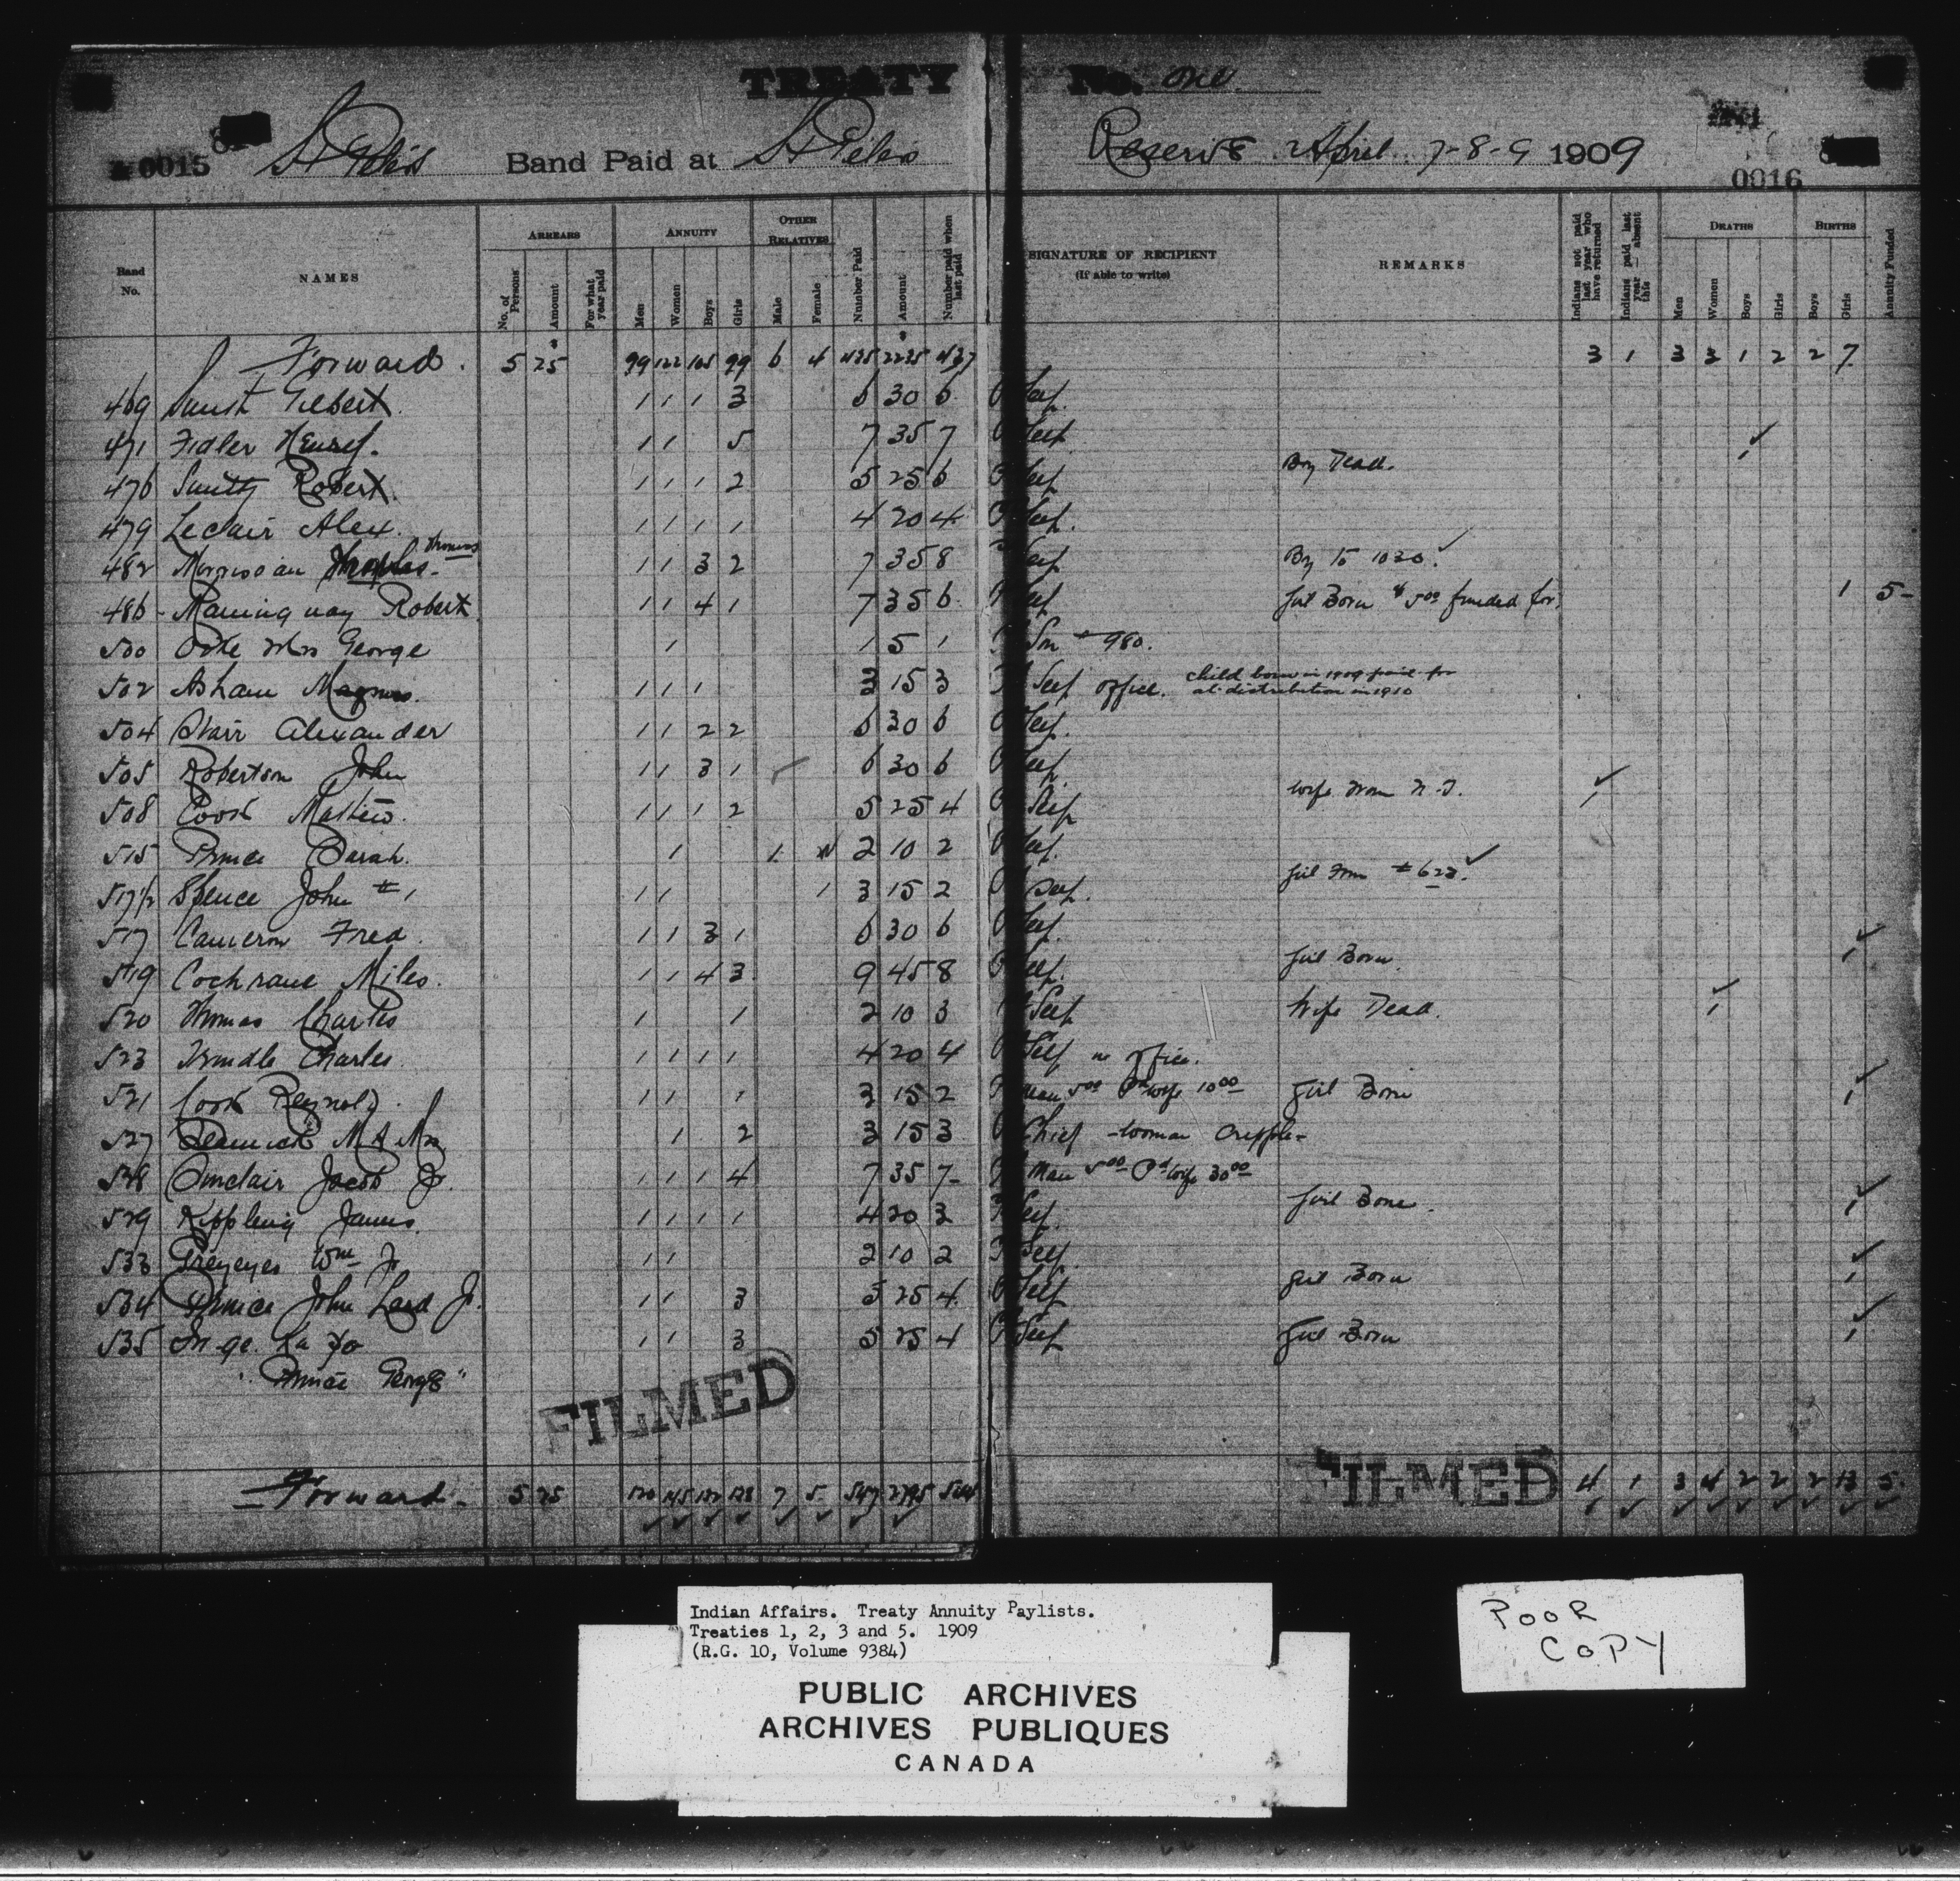 TREATY No. One
0015 St Peters Band Paid at St Peters Reserve April 7-8-9 1909 0016
Band No. NAMES ARREARS ANNUITY OTHER RELATIVES Number Paid Amount Number paid when last paid SIGNATURE OF RECIPIENT (If able to write) REMARKS Indians not paid last year who have returned Indians paid last year — absent this DEATHS BIRTHS Annuity Funded
No. of Persons Amount For what year paid Men Women Boys Girls Male Female Men Women Boys Girls Boys Girls
Forward. 5 25 99 122 105 99 6 4 435 2235 437 3 1 3 3 1 2 2 7
469 Smith Gilbert. 1 1 1 3 6 30 6 Self.
471 Fidler Henry. 1 1 5 7 35 7 Self
476 Smith Robert. 1 1 1 2 5 25 6 Self Boy Dead. 1
479 Leclair Alex. 1 1 1 1 4 20 4 Self.
482 Morrisseau Thomas 1 1 3 2 7 35 8 Self Boy to 1030.
486 Robert 1 1 4 1 7 35 6 Self Girl Born $5.00 funded for. 1 5-
500 Mrs George 1 1 5 1 Son # 980.
502 Asham Magnus. 1 1 1 3 15 3 Self office. child born in 1909 paid for at distribution in 1910
504 Starr Alexander 1 1 2 2 6 30 6 Self.
505 Robertson John 1 1 3 1 6 30 6 Self.
508 Cook Mathew. 1 1 1 2 5 25 4 Self wife from N.T. 1
515 Prince Sarah. 1 1 2 10 2 Self.
517½ Spence John # 1 1 1 1 3 15 2 Self. Girl from # 623.
517 Cameron Fred. 1 1 3 1 6 30 6 Self.
519 Cochrane Miles. 1 1 4 3 9 45 8 Self. Girl Born 1
520 Thomas Charles 1 1 2 10 3 Self Wife Dead. 1
523 Trindle Charles. 1 1 1 1 4 20 4 Self in office.
521 Cook Reynold. 1 1 1 3 15 2 Man 5.00 Pd wife 10.00 Girl Born 1
527 Mrs 1 2 3 15 3 Chief - woman cripple-
528 Sinclair Jacob Jr. 1 1 1 4 7 35 7 Man 5.00 Pd wife 30.00
529 Kippling James. 1 1 1 1 4 20 3 Self. Girl Born. 1
533 Greyeyes Wm Jr 1 1 2 10 2 Self
534 Prince John Laird Jr. 1 1 3 5 25 4 Self Girl Born 1
535 In ge. ka yo 1 1 3 5 25 4 Self Girl Born 1
"Prince George"
FILMED
Forward. 5 25 120 145 132 138 7 5 547 2795 544 FILMED 4 1 3 4 2 2 2 13 5.
Indian Affairs. Treaty Annuity Paylists.
Treaties 1, 2, 3 and 5. 1909
(R.G. 10, Volume 9384)
PUBLIC ARCHIVES
ARCHIVES PUBLIQUES
CANADA
POOR
COPY